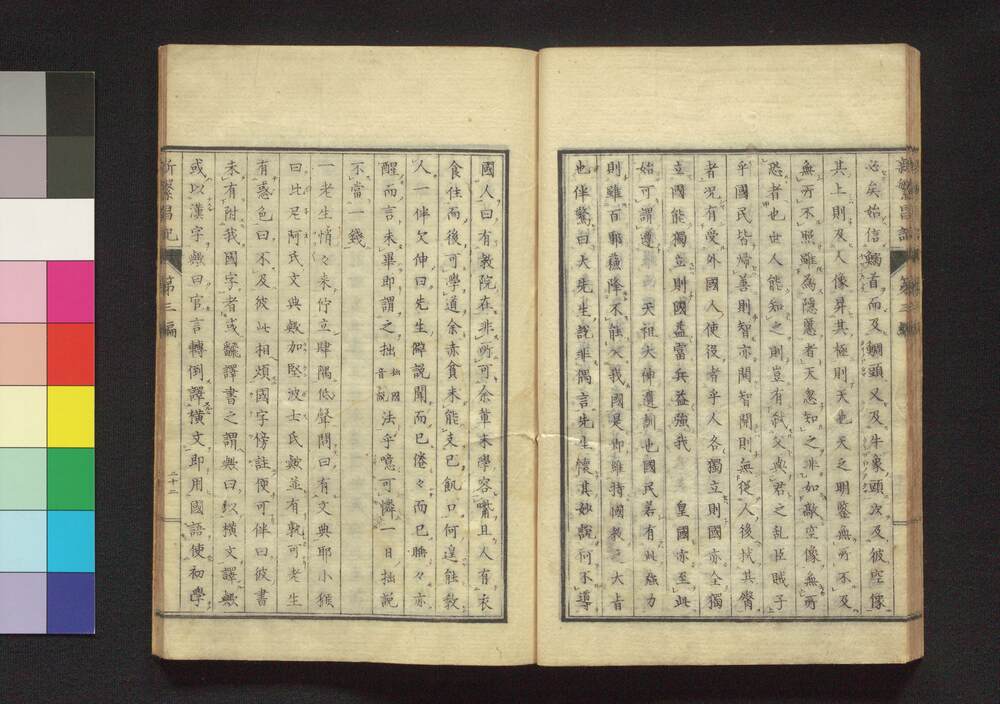 必矣始信鰯首而及鯛頭又及牛象頭次及彼空像
其上則及人像昇其極則天也天之明鑒無所不及
無所不照雖為隱慝者天忽知之非如敵空像無所
恐者也世人能知之則豈有弑父與君之乱臣賊子
乎國民皆歸善則智亦開智開則無從人後拭其臀
者況有受外國人使役者乎人各獨立則國亦全獨
立國能獨立則國益富兵益強我 皇國亦至此
始可謂遵 天祖大神遺訓也國民若有此強力
則雖百耶蘇降不能入我國是即維持國教之大旨
也伴驚曰大先生說非偶言先生懷其妙說何不導
國人曰有教院在非所可余輩未學容嘴且人有衣
食住而後可學道余赤貧未能支已飢口何遑能教
人一伴欠伸曰先生僻說聞而已倦々而已睡々亦
醒而言未畢即謂之拙 拙國音說 法乎噫可憐一日拙說
不當一錢
一老生悄々来佇立肆隅低聲問曰有文典耶小猴
曰此尼阿氏文典歟加堅波士氏歟並有孰可老生
有惑色曰不及彼此相煩國字傍註便可伴曰彼書
未有附我國字者或飜譯書之謂歟曰以橫文譯歟
或以漢字歟曰官言轉倒譯橫文即用國語使初學
新繁昌記
第三編
二十二